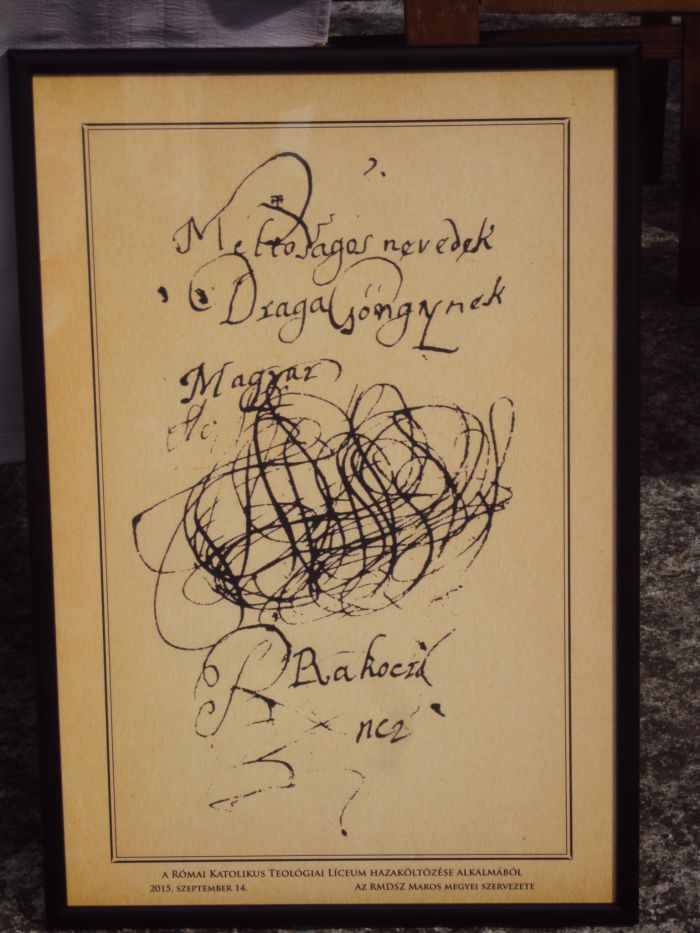 Meltoságos nevedek
Draga Göngynek
Magyar
Rakoczi
ncz
a Római Katolikus Teológiai Líceum hazaköltözése alkalmából
2015. szeptember 14.
Az RMDSZ Maros megyei szervezete